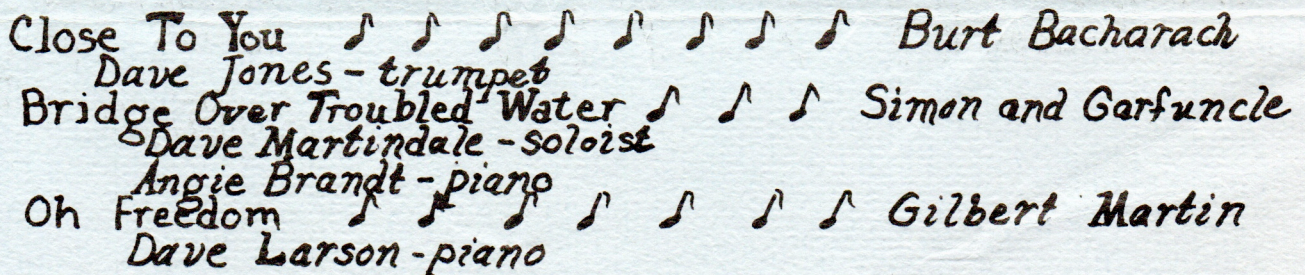 Close To You ♪ ♪ ♪ ♪ ♪ ♪ ♪ ♪ Burt Bacharach
Dave Jones - trumpet
Bridge Over Troubled Water ♪ ♪ ♪ Simon and Garfuncle
Dave Martindale - soloist
Angie Brandt - piano
Oh Freedom ♪ ♪ ♪ ♪ ♪ ♪ ♪ Gilbert Martin
Dave Larson - piano